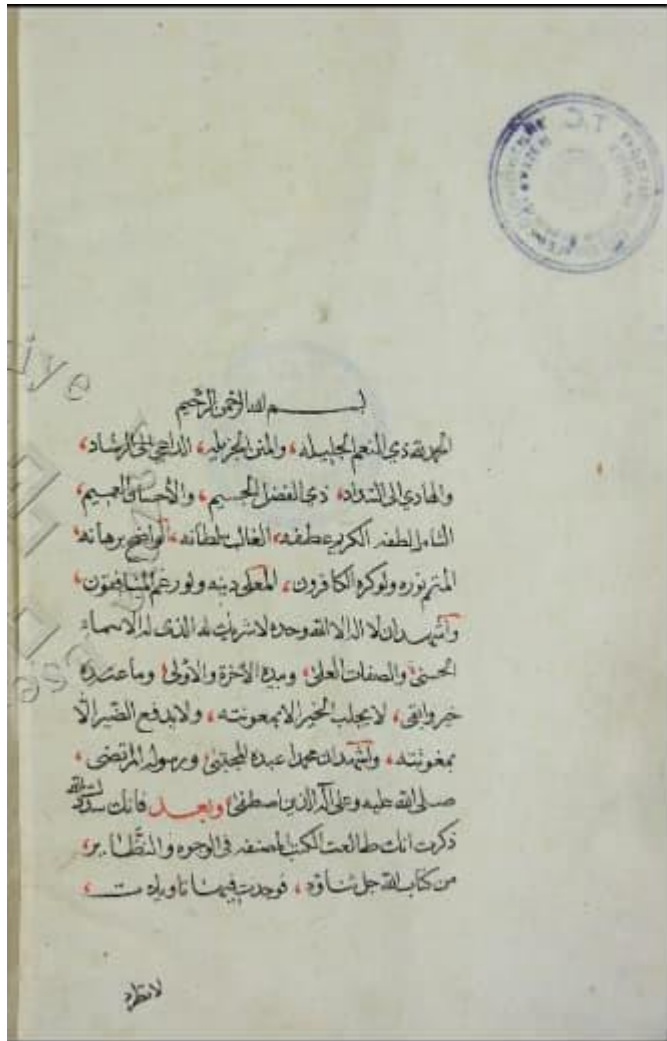 بسم الله الرحمن الرحيم
الحمد لله ذي النعم الجليله، والمنن الجزيله، الداعي الى الرشاد،
والهادي الى السداد، ذي الفضل الجسيم، والأحسان العميم،
الشامل لطفه الكريم عطفه، الغالب سلطانه، الواضح برهانه،
المتم نوره ولوكره الكافرون، المعلي دينه ولو رغم المنافقون،
وأشهد ان لا اله الا الله وحده لا شريك له الذى له الاسماء
الحسنى والصفات العلى، وبيده الآخرة والاولى، وما عنده
خير وابقى، لا يجلب الخير الا بمعونته، ولا يدفع الضير الا
بمغوثته، وأشهد ان محمدا عبده المجتبى ورسوله المرتضى،
صلى الله عليه وعلى آله الذين اصطفى، وبعد فانك سددك الله
ذكرت انك طالعت الكتب المصنفه فى الوجوه والنظاير،
من كتاب الله جل ثناؤه، فوجدت فيها تاويلات،
لا تطرد